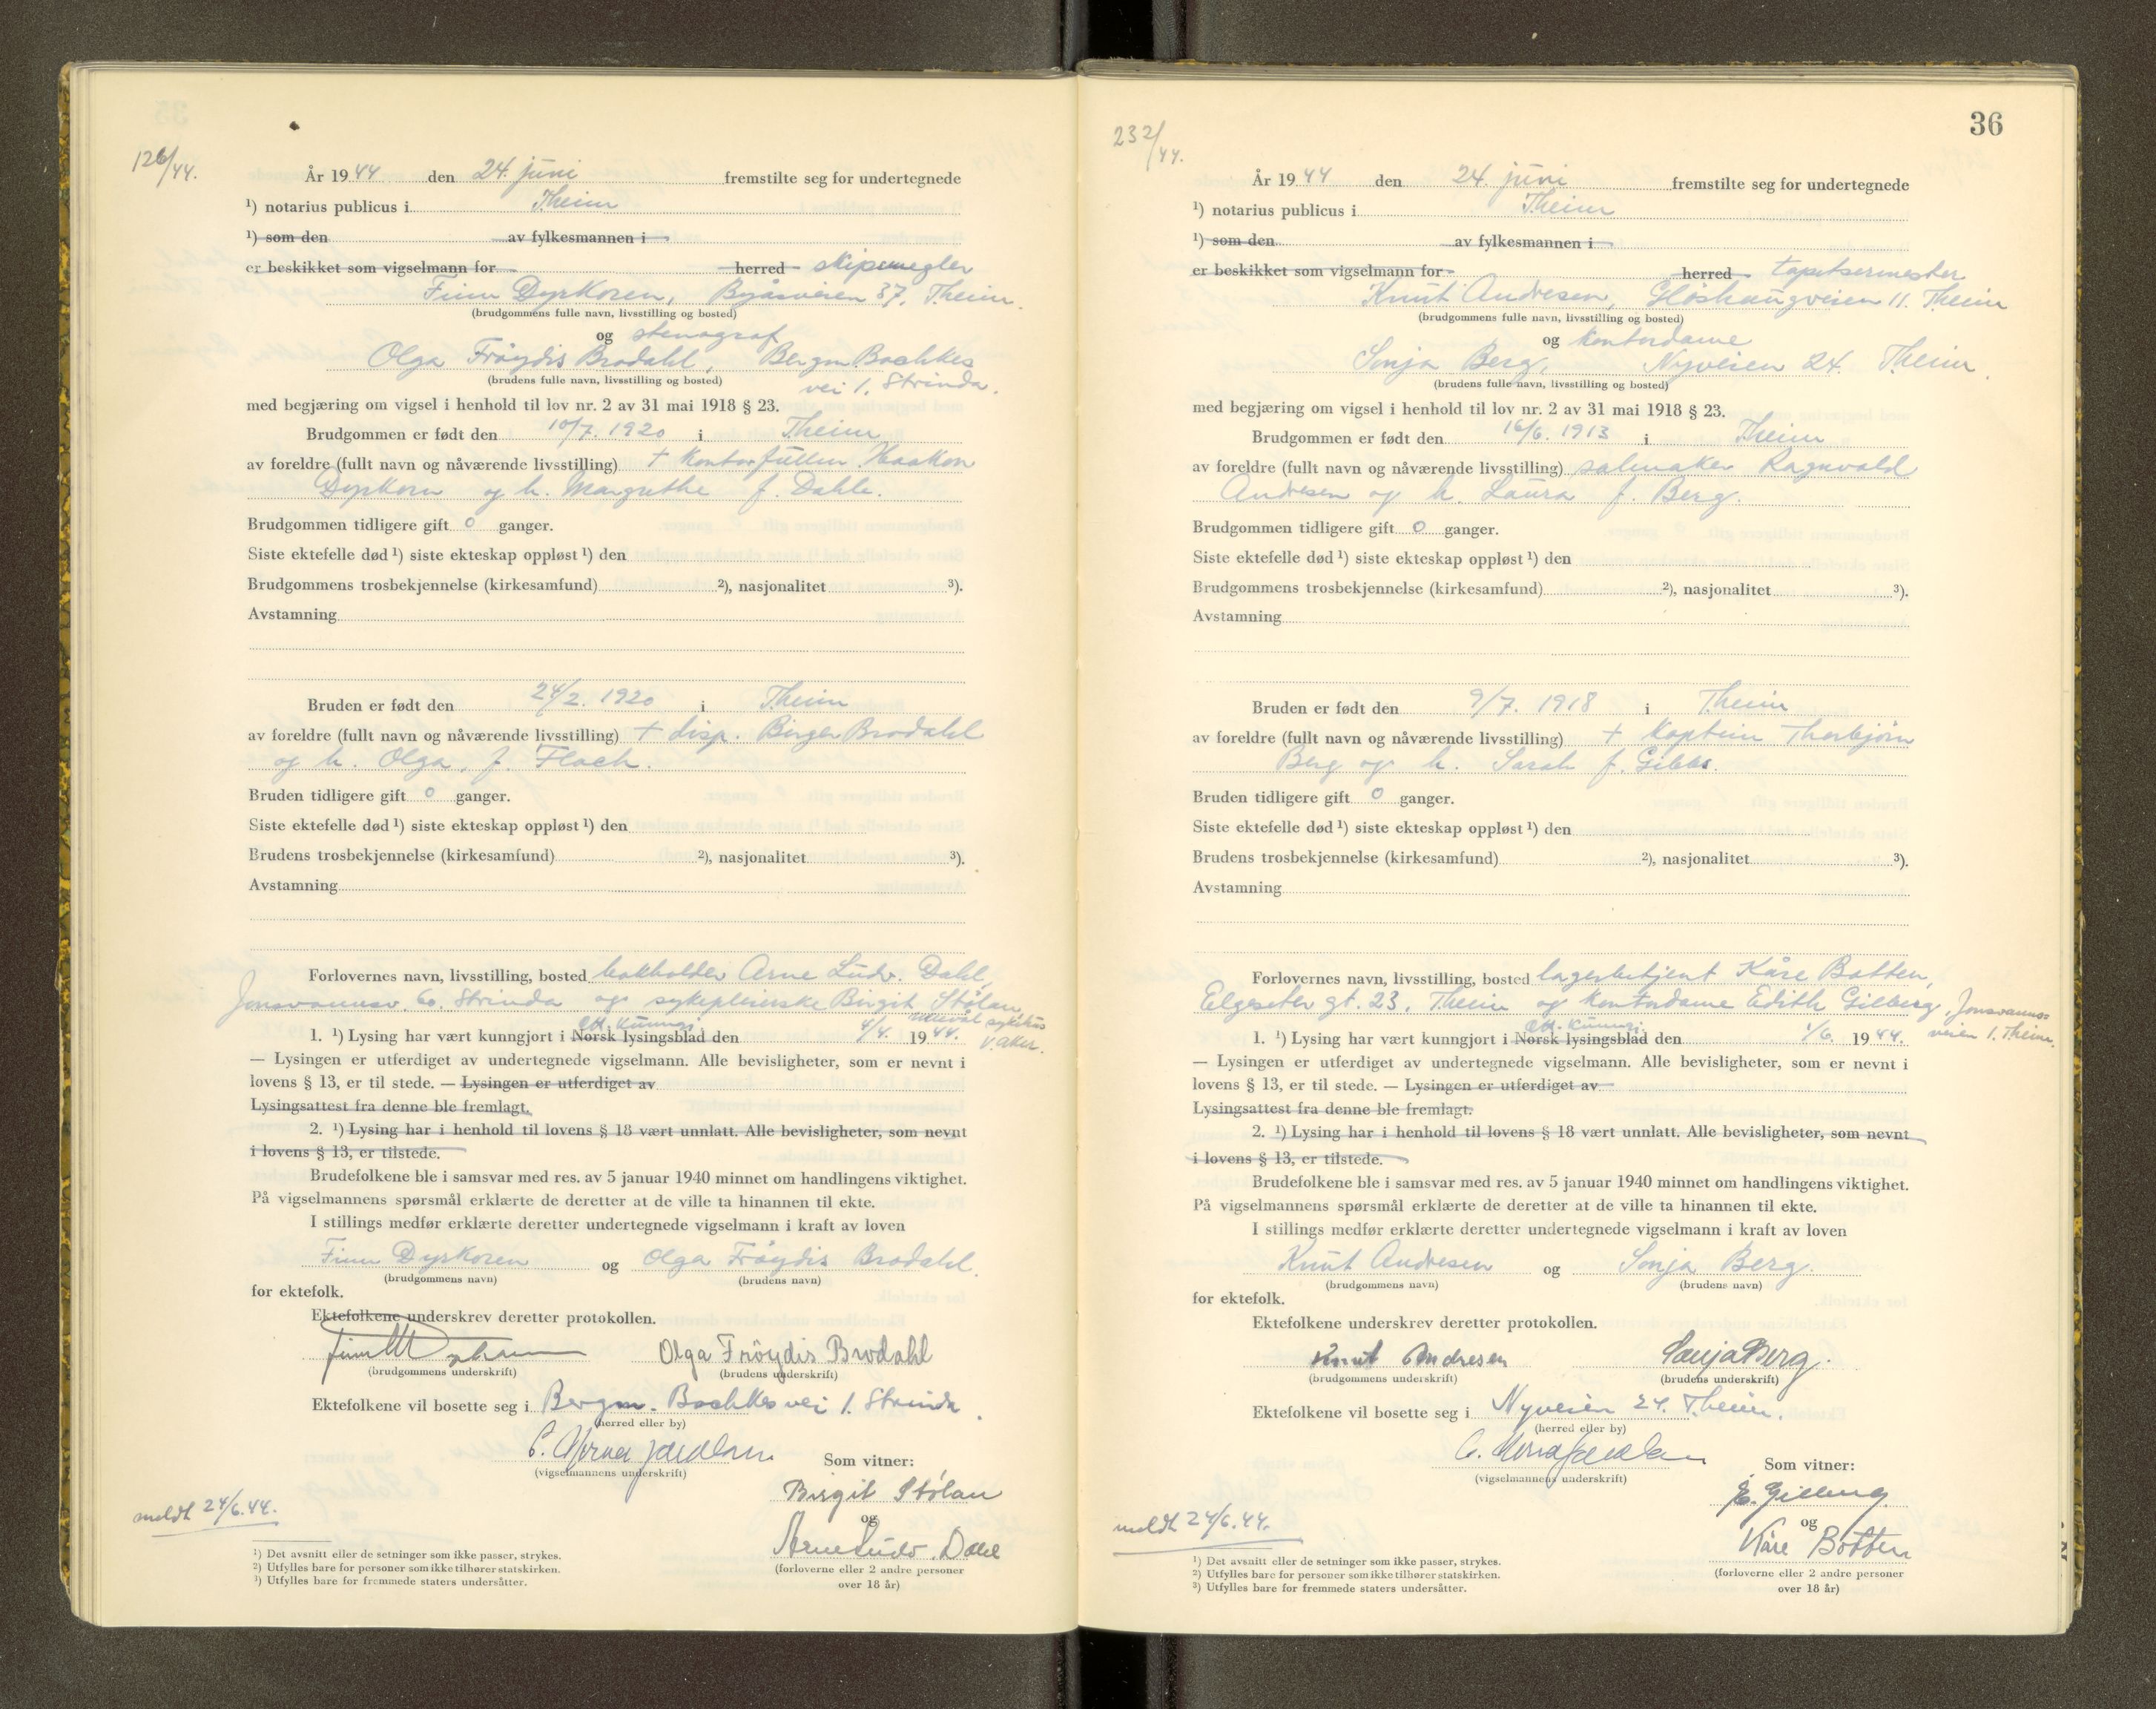 126/44.
År 1944 den 24. juni fremstilte seg for undertegnede
¹) notarius publicus i Theim
¹) som den av fylkesmannen i
er beskikket som vigselmann for herred skipsmegler
Finn Dyrkoren, Byåsveien 37, Theim.
(brudgommens fulle navn, livsstilling og bosted)
og stenograf
Olga Frøydis Brodahl, Bergm. Bachkes
(brudens fulle navn, livsstilling og bosted) vei 1. Strinda.
med begjæring om vigsel i henhold til lov nr. 2 av 31 mai 1918 § 23.
Brudgommen er født den 10/7. 1920 i Theim
av foreldre (fullt navn og nåværende livsstilling) + kontorfullm. Haakon
Dyrkorn og h. Margrethe f. Dahle.
Brudgommen tidligere gift 0 ganger.
Siste ektefelle død ¹) siste ekteskap oppløst ¹) den
Brudgommens trosbekjennelse (kirkesamfund) ²), nasjonalitet ³).
Avstamning
Bruden er født den 24/2. 1920 i Theim
av foreldre (fullt navn og nåværende livsstilling) + disp. Birger Brodahl
og h. Olga, f. Flach.
Bruden tidligere gift 0 ganger.
Siste ektefelle død ¹) siste ekteskap oppløst ¹) den
Brudens trosbekjennelse (kirkesamfund) ²), nasjonalitet ³).
Avstamning
Forlovernes navn, livsstilling, bosted bokholder Arne Ludv. Dahl,
Jonsvannsv. 60. Strinda og sykepleierske Birgit Stølan,
Ullevål sykehus
off. kunngj.
V. Aker.
1. ¹) Lysing har vært kunngjort i Norsk lysingsblad den 4/4. 1944.
— Lysingen er utferdiget av undertegnede vigselmann. Alle bevisligheter, som er nevnt i
lovens § 13, er til stede. — Lysingen er utferdiget av
Lysingsattest fra denne ble fremlagt.
2. ¹) Lysing har i henhold til lovens § 18 vært unnlatt. Alle bevisligheter, som nevnt
i lovens § 13, er tilstede.
Brudefolkene ble i samsvar med res. av 5 januar 1940 minnet om handlingens viktighet.
På vigselmannens spørsmål erklærte de deretter at de ville ta hinannen til ekte.
I stillings medfør erklærte deretter undertegnede vigselmann i kraft av loven
Finn Dyrkoren og Olga Frøydis Brodahl.
(brudgommens navn) (brudens navn)
for ektefolk.
Ektefolkene underskrev deretter protokollen.
Olga Frøydis Brodahl
(brudgommens underskrift) (brudens underskrift)
Ektefolkene vil bosette seg i Bergm. Bachkes vei 1. Strinda.
(herred eller by)
(vigselmannens underskrift) Som vitner:
Birgit Stølan
og
Arne Ludv. Dahl
(forloverne eller 2 andre personer
over 18 år)
meldt 24/6.44.
¹) Det avsnitt eller de setninger som ikke passer, strykes.
²) Utfylles bare for personer som ikke tilhører statskirken.
³) Utfylles bare for fremmede staters undersåtter.
36
232/44.
År 1944 den 24. juni fremstilte seg for undertegnede
¹) notarius publicus i Theim
¹) som den av fylkesmannen i
er beskikket som vigselmann for herred tapetsermester
Knut Andresen, Gløshaugveien 11. Theim
(brudgommens fulle navn, livsstilling og bosted)
og kontordame
Sonja Berg, Nyveien 24. Theim.
(brudens fulle navn, livsstilling og bosted)
med begjæring om vigsel i henhold til lov nr. 2 av 31 mai 1918 § 23.
Brudgommen er født den 16/6. 1913 i Theim
av foreldre (fullt navn og nåværende livsstilling) salmaker Ragnvald
Andresen og h. Laura f. Berg.
Brudgommen tidligere gift 0 ganger.
Siste ektefelle død ¹) siste ekteskap oppløst ¹) den
Brudgommens trosbekjennelse (kirkesamfund) ²), nasjonalitet ³).
Avstamning
Bruden er født den 9/7. 1918 i Theim
av foreldre (fullt navn og nåværende livsstilling) + kaptein Thorbjørn
Berg og h. Sarah f. Gibbs.
Bruden tidligere gift 0 ganger.
Siste ektefelle død ¹) siste ekteskap oppløst ¹) den
Brudens trosbekjennelse (kirkesamfund) ²), nasjonalitet ³).
Avstamning
Forlovernes navn, livsstilling, bosted lagerbetjent Kåre Botten,
Elgeseter gt. 23. Theim og kontordame Edith Gilberg, Jonsvanns-
veien 1. Theim.
off. kunngj.
1. ¹) Lysing har vært kunngjort i Norsk lysingsblad den 1/6. 1944.
— Lysingen er utferdiget av undertegnede vigselmann. Alle bevisligheter, som er nevnt i
lovens § 13, er til stede. — Lysingen er utferdiget av
Lysingsattest fra denne ble fremlagt.
2. ¹) Lysing har i henhold til lovens § 18 vært unnlatt. Alle bevisligheter, som nevnt
i lovens § 13, er tilstede.
Brudefolkene ble i samsvar med res. av 5 januar 1940 minnet om handlingens viktighet.
På vigselmannens spørsmål erklærte de deretter at de ville ta hinannen til ekte.
I stillings medfør erklærte deretter undertegnede vigselmann i kraft av loven
Knut Andresen og Sonja Berg.
(brudgommens navn) (brudens navn)
for ektefolk.
Ektefolkene underskrev deretter protokollen.
Knut Andresen Sonja Berg.
(brudgommens underskrift) (brudens underskrift)
Ektefolkene vil bosette seg i Nyveien 24. Theim.
(herred eller by)
(vigselmannens underskrift) Som vitner:
E. Gilberg
og
Kåre Botten
(forloverne eller 2 andre personer
over 18 år)
meldt 24/6.44.
¹) Det avsnitt eller de setninger som ikke passer, strykes.
²) Utfylles bare for personer som ikke tilhører statskirken.
³) Utfylles bare for fremmede staters undersåtter.